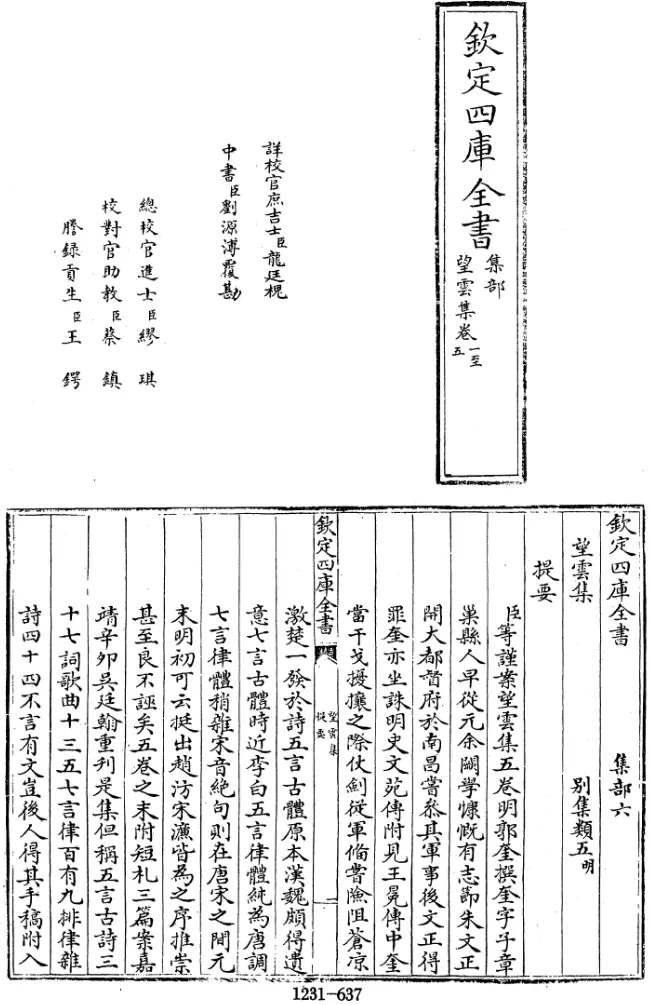 欽定四庫全書
集部
望雲集卷一至五
詳校官庶吉士臣龍廷槐
中書臣劉源溥覆勘
總校官進士臣繆琪
校對官助教臣蔡鎮
謄録貢生臣王鍔
欽定四庫全書 集部六
望雲集 别集類五明
提要
臣等謹案望雲集五卷明郭奎撰奎字子章
巢縣人早從元余闕學慷慨有志節朱文正
開大都督府於南昌嘗叅其軍事後文正得
罪奎亦坐誅明史文苑傳附見王冕傳中奎
當干戈擾攘之際仗劍從軍備嘗險阻蒼凉
欽定四庫全書
望雲集
提要
一
激楚一發於詩五言古體原本漢魏頗得遺
意七言古體時近李白五言律體純為唐調
七言律體稍雜宋音絶句則在唐宋之間元
末明初可云挺出趙汸宋濂皆為之序推崇
甚至良不誣矣五卷之末附短札三篇案嘉
靖辛卯吳廷翰重刋是集但稱五言古詩三
十七詞歌曲十三五七言律百有九排律雜
詩四十四不言有文豈後人得其手稿附入
1231-637